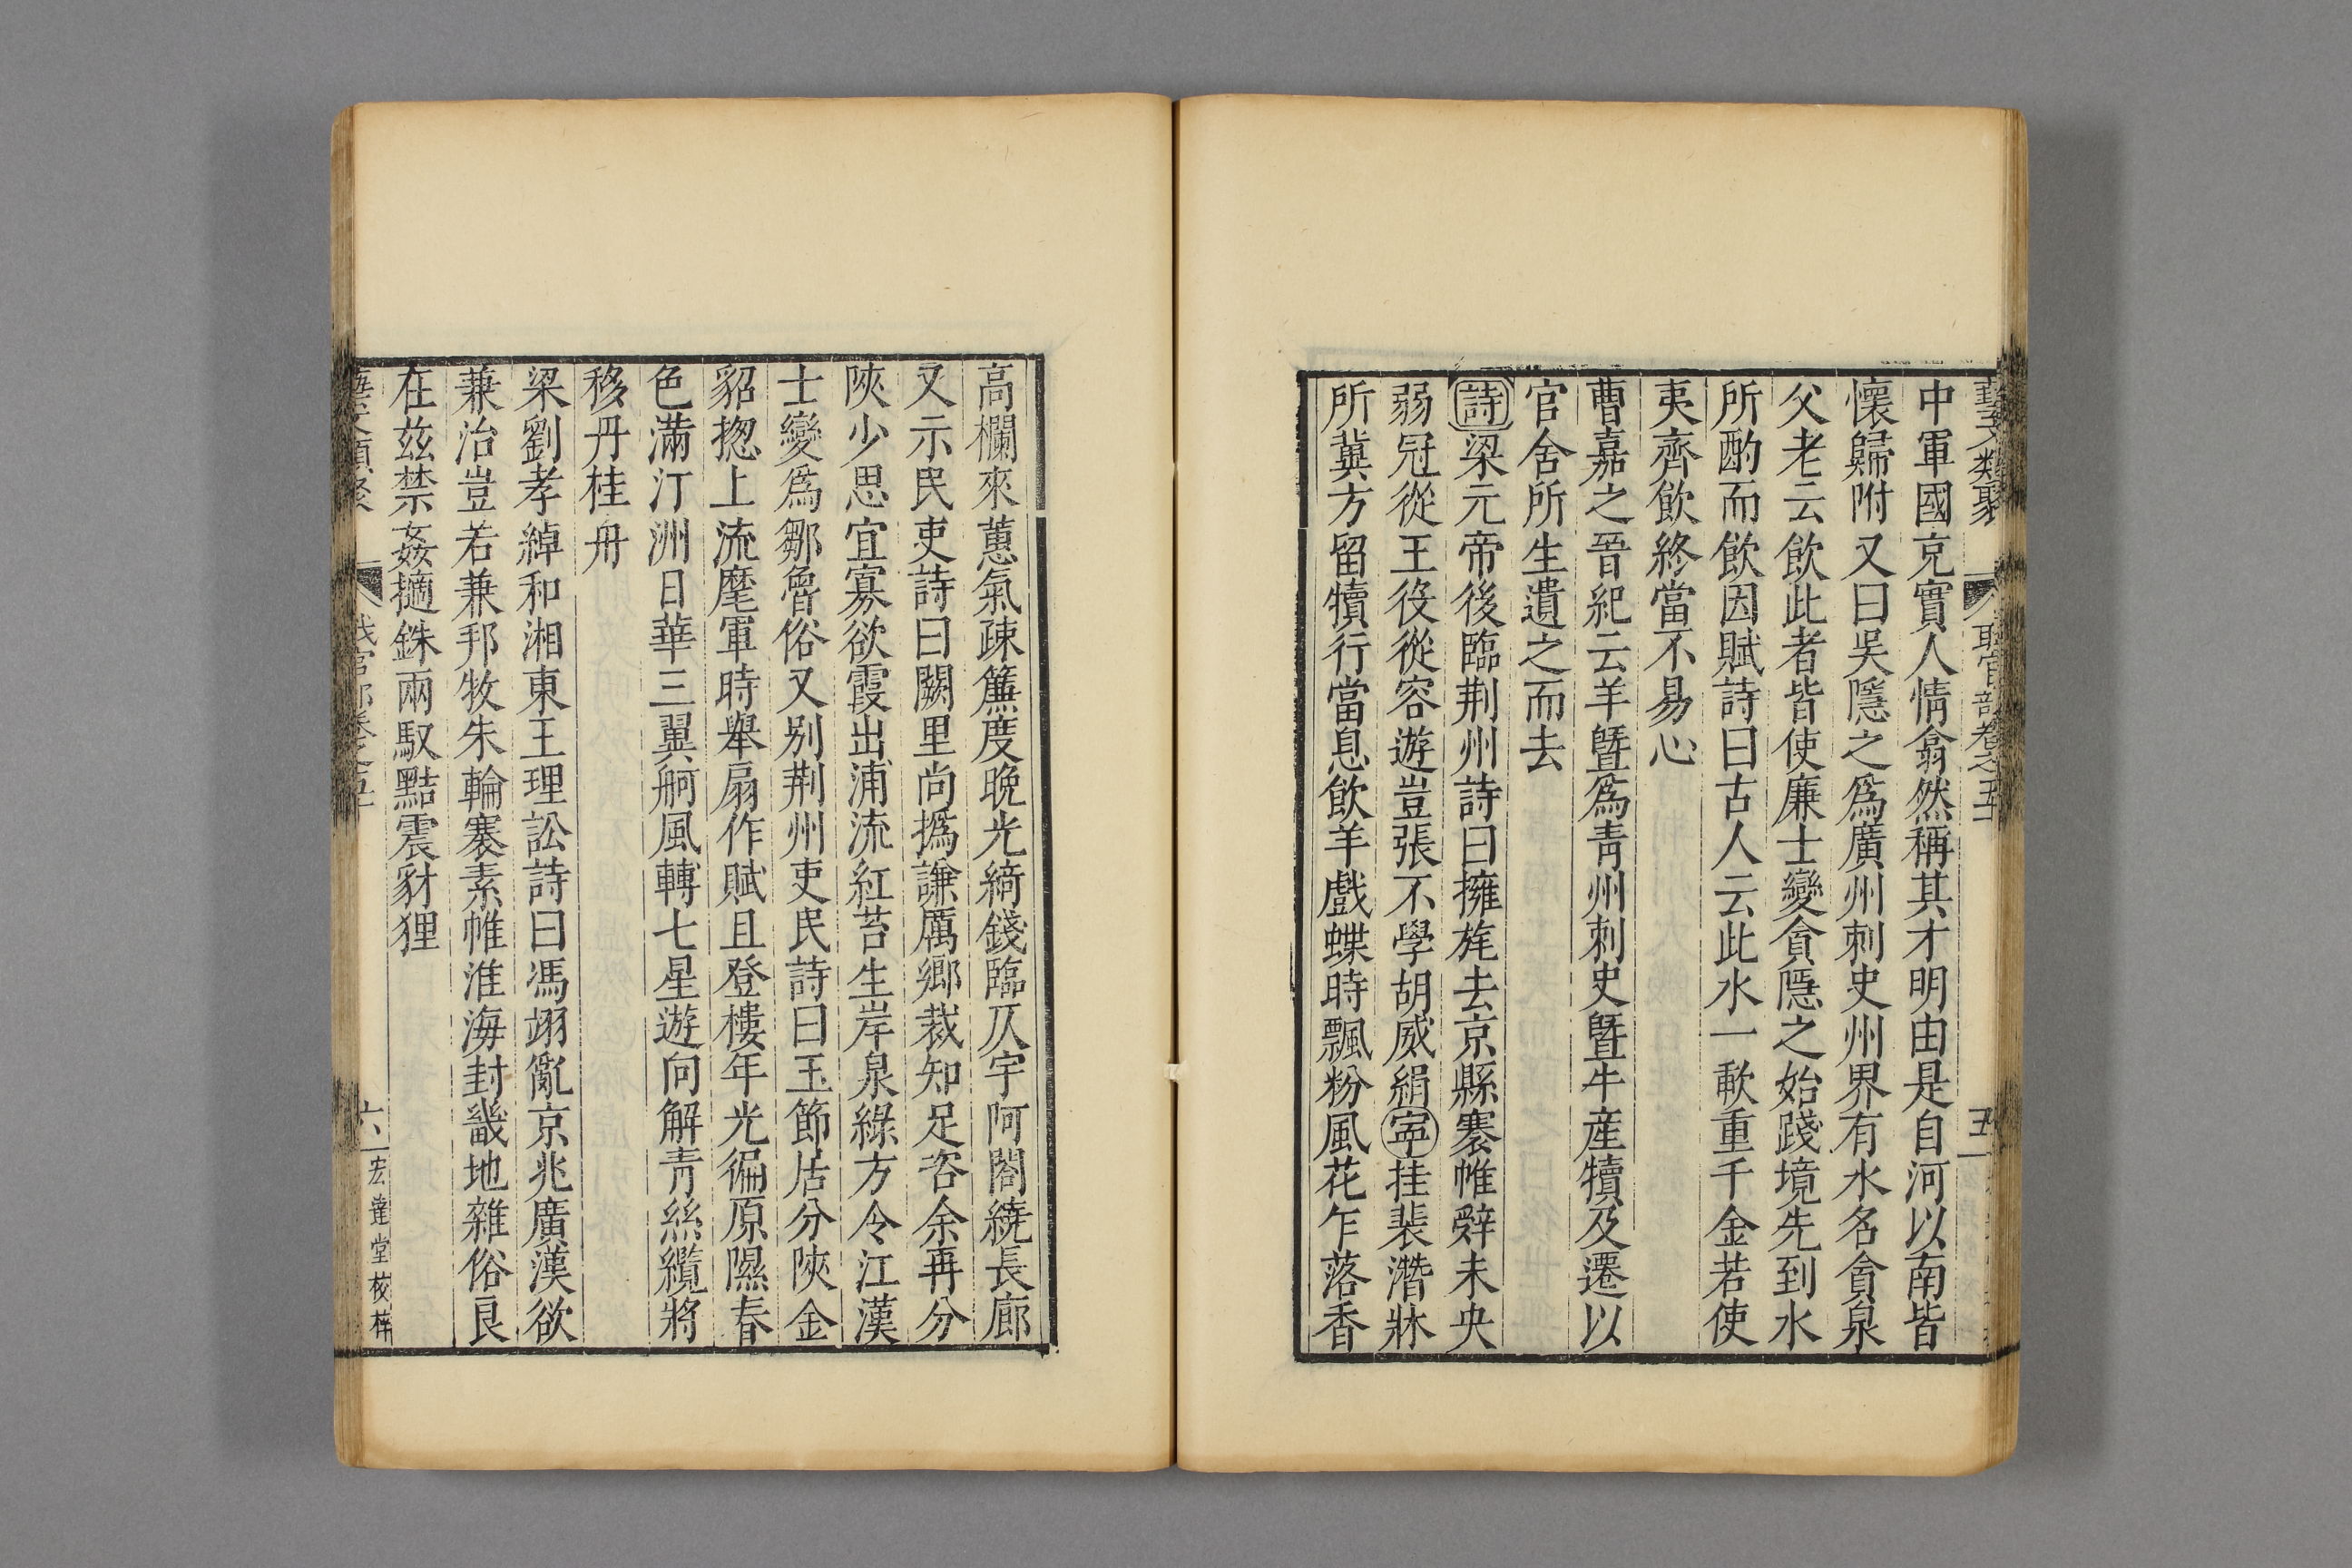 藝文類聚 職官部卷之五十 五
中軍國充實人情翕然稱其才明由是自河以南皆
懷歸附又曰吳隱之爲廣州刺史州界有水名貪泉
父老云飲此者皆使廉士變貪隱之始踐境先到水
所酌而飲因賦詩曰古人云此水一歃重千金若使
夷齊飲終當不易心
曹嘉之晉紀云羊曁爲青州刺史曁牛産犢及遷以
官舍所生遺之而去
詩梁元帝後臨荆州詩曰擁旄去京縣褰帷辤未央
弱冠從王役從容遊豈張不學胡威絹寧挂裴潛牀
所冀方留犢行當息飲羊戲蝶時飄粉風花乍落香
高欄來蕙氣疎簾度晚光綺錢臨仄宇阿閣繞長廊
又示民吏詩曰闕里尚撝謙厲鄉裁知足咨余再分
陝少思宜寡欲霞出浦流紅苔生岸泉綠方令江漢
士變爲鄒魯俗又别荆州吏民詩曰玉節居分陝金
貂揔上流麾軍時舉扇作賦且登樓年光徧原隰春
色滿汀洲日華三翼舸風轉七星遊向解青絲纜將
移丹桂舟
梁劉孝綽和湘東王理訟詩曰馮翊亂京兆廣漢欲
兼治豈若兼邦牧朱輪褰素帷淮海封畿地雜俗良
在茲禁姦擿銖兩馭黠震豺狸
六 宏達堂校梓